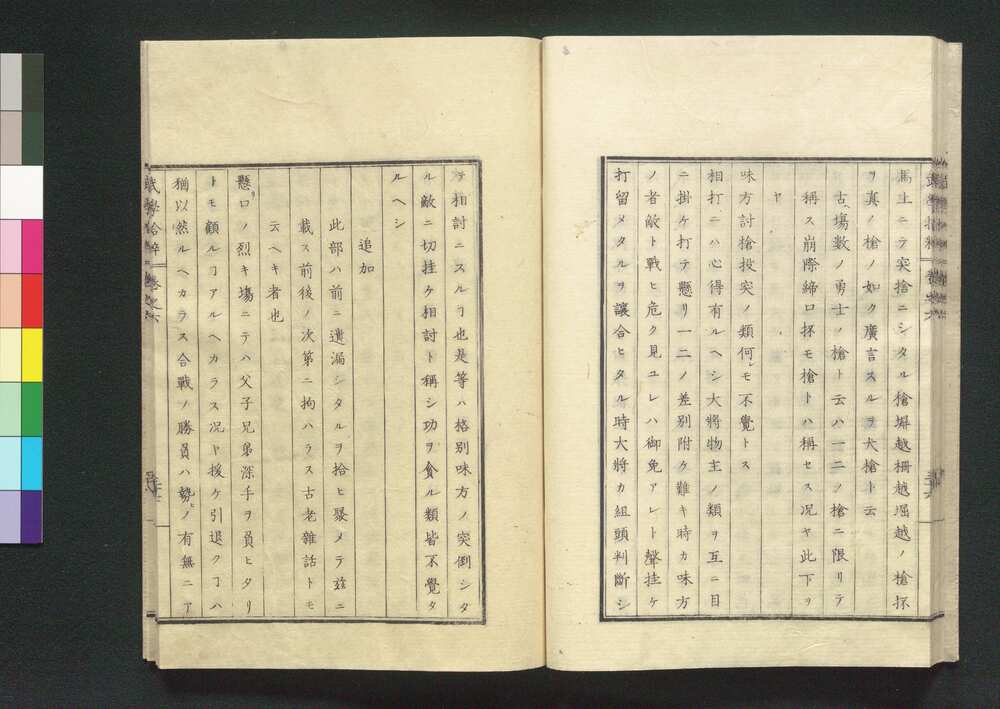 馬上ニテ突捨ニシタル槍塀越柵越堀越ノ槍抔
ヲ真ノ槍ノ如ク廣言スルヲ犬槍ト云
古塲数ノ勇士ノ槍ト云ハ一二ノ槍ニ限リテ
稱ス崩際締口抔モ槍トハ稱セス况ヤ此下ヲ
ヤ
味方討槍投突ノ類何レモ不覺トス
相打ニハ心得有ルヘシ大將物主ノ類ヲ互ニ目
ニ掛ケ打テ懸リ一二ノ差別附ケ難キ時カ味方
ノ者敵ト戰ヒ危ク見ユレハ御免アレト聲挂ケ
打留メタルヲ讓合ヒタル時大將カ組頭判斷シ
テ相討ニスルヿ也是等ハ格別味方ノ突倒シタ
ル敵ニ切挂ケ相討ト稱シ功ヲ貪ル類皆不覺タ
ルヘシ
追加
此部ハ前ニ遺漏シタルヲ拾ヒ聚メラ茲ニ
載ス前後ノ次第ニ拘ハラス古老雜話トモ
云ヘキ者也
懸リ口ノ烈キ塲ニテハ父子兄弟深手ヲ負ヒタリ
トモ顧ルヿアルヘカラス况ヤ援ケ引退クヿハ
猶以然ルヘカラス合戰ノ勝負ハ勢ヒノ有無ニア